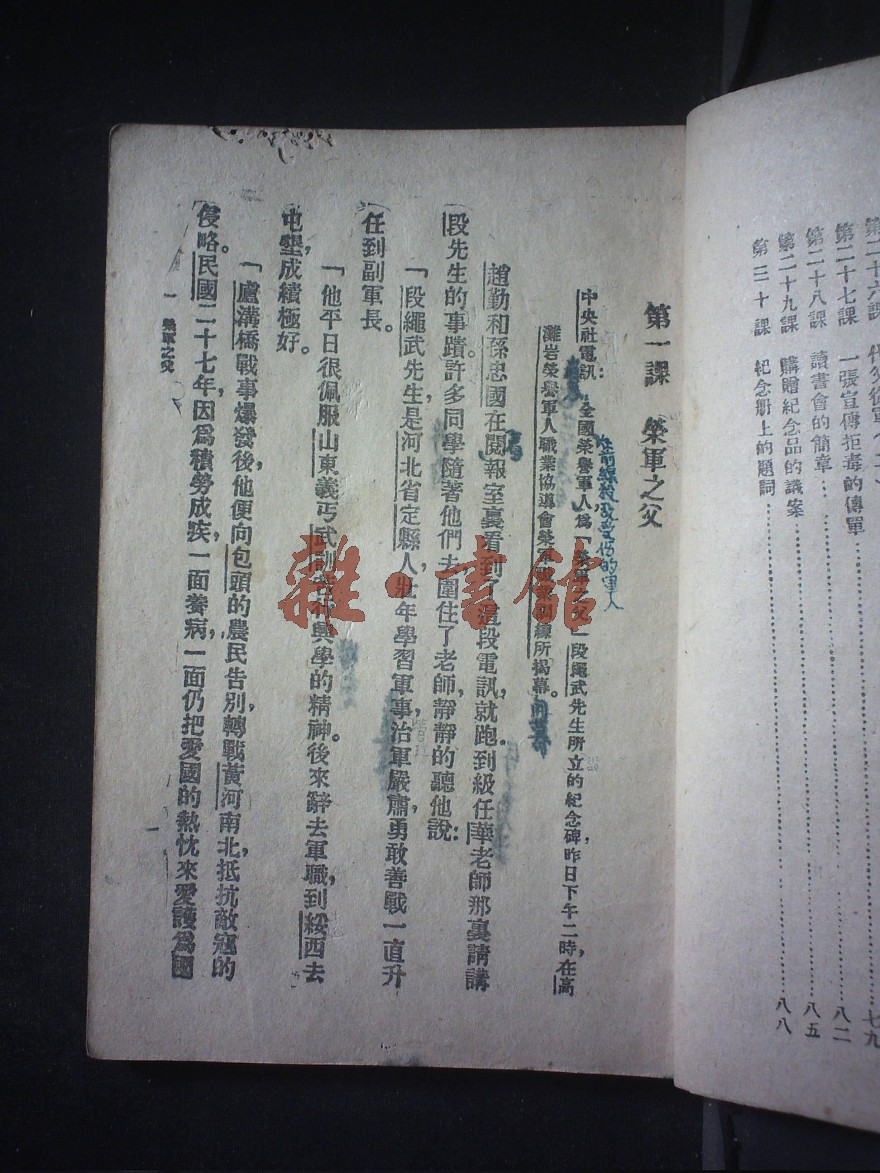 第二十七課　一張宣傳拒毒的傳單……八二
第二十八課　讀書會的簡章……八五
第二十九課　購贈紀念品的議案
第三十課　紀念册上的題詞……八八
七九
第一課　榮軍之父
中央社電訊：全國榮譽軍人爲「榮軍之父」段繩武先生所立的紀念碑，昨日下午二時，在高
灘岩榮譽軍人職業協導會榮軍訓練所揭幕。
趙勤和孫忠國在閱報室裏看到了這段電訊，就跑到級任華老師那裏請講
段先生的事蹟。許多同學隨著他們去圍住了老師，靜靜的聽他說：
「段繩武先生，是河北省定縣人，壯年學習軍事，治軍嚴肅，勇敢善戰，一直升
任到副軍長。
「他平日很佩服山東義丐武訓興學的精神。後來辭去軍職，到綏西去
屯墾，成績極好。
「盧溝橋戰事爆發後，他便向包頭的農民告別，轉戰黃河南北，抵抗敵寇的
侵略。民國二十七年，因爲積勞成疾，一面養病，一面仍把愛國的熱忱來愛護爲國
一　榮軍之父
一
受傷的軍人
雜·書館